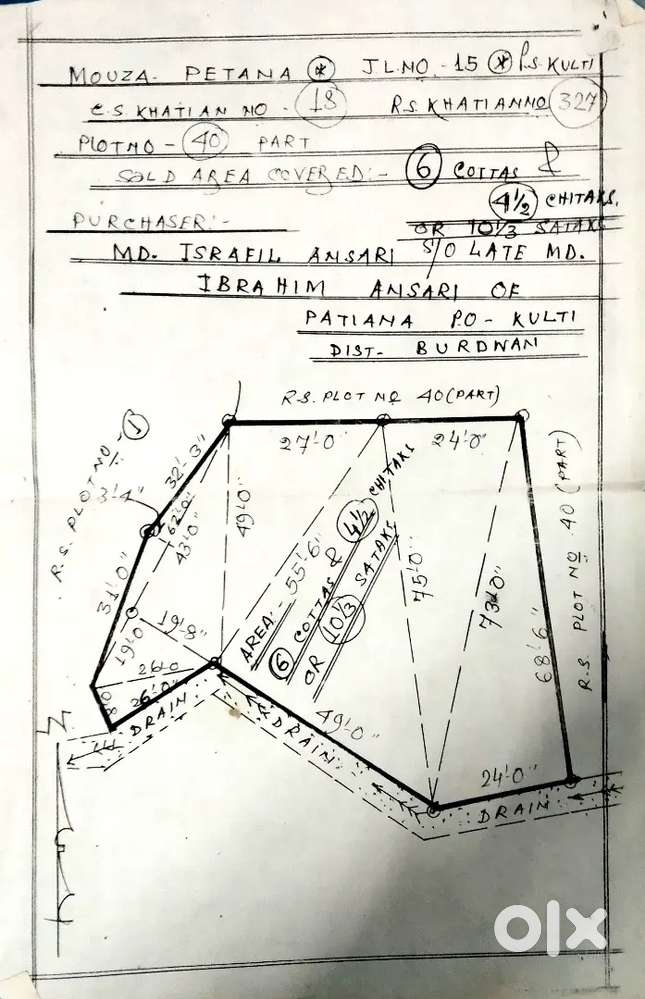 MOUZA- PETANA * JL.NO.-15 * P.S. KULTI
C.S. KHATIAN NO - 18 R.S. KHATIAN NO 327
PLOT NO - 40 PART
SOLD AREA COVERED:- 6 COTTAS &
4½ CHITAKS.
PURCHASER:- OR 10⅓ SATAKS
MD. ISRAFIL ANSARI S/O LATE MD.
IBRAHIM ANSARI OF
PATIANA P.O - KULTI
DIST- BURDWAN
R.S. PLOT NO 40 (PART)
27'-0"
24'-0"
R.S. PLOT NO - 1
32'-3"
3'-4"
62'-0"
43'-0"
49'-0"
31'-0"
19'-0
19'-8"
26'-0
26'-0"
8'-0
AREA:- 55'-6"
6 COTTAS & 4½ CHITAKS
OR 10⅓ SATAKS
75'-0"
73'-0"
68'-6"
R.S. PLOT NO 40 (PART)
49'-0"
24'-0"
DRAIN
DRAIN
DRAIN
olx